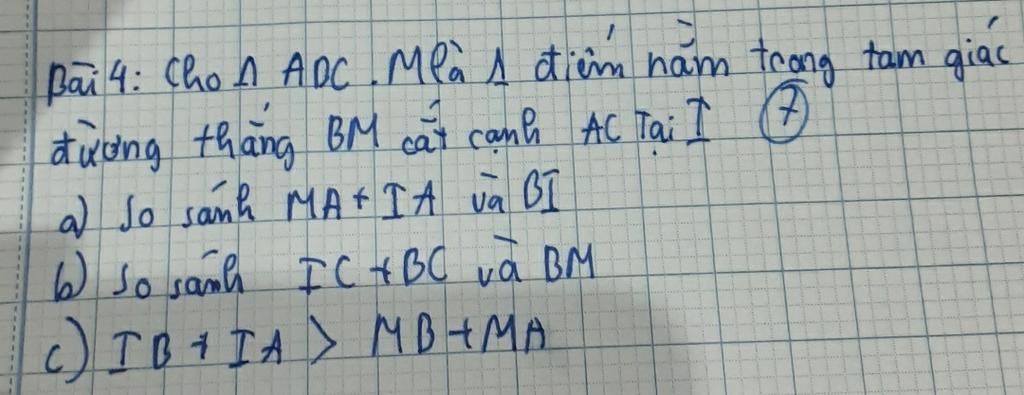 Bài 4: Cho Δ ABC. M là 1 điểm nằm trong tam giác
đường thẳng BM cắt cạnh AC Tại I ⑦
a) So sánh MA + IA và BI
b) So sánh IC + BC và BM
c) IB + IA > MB + MA